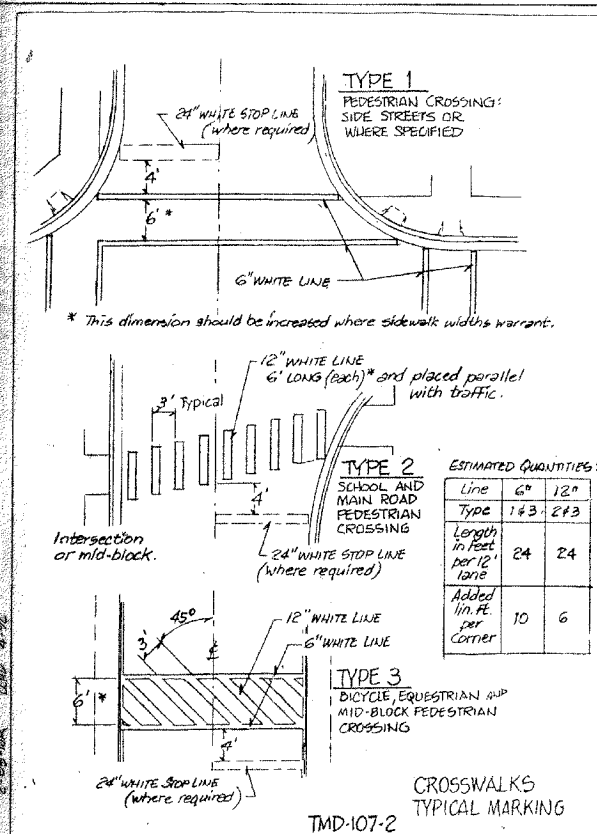 TYPE 1
PEDESTRIAN CROSSING:
SIDE STREETS OR
WHERE SPECIFIED
24" WHITE STOP LINE
(where required)
4'
6' *
6" WHITE LINE
* This dimension should be increased where sidewalk widths warrant.
12" WHITE LINE
6' LONG (each)* and placed parallel
with traffic.
3' Typical
TYPE 2
SCHOOL AND
MAIN ROAD
PEDESTRIAN
CROSSING
4'
24" WHITE STOP LINE
(where required)
Intersection
or mid-block.
ESTIMATED QUANTITIES:
Line 6" 12"
Type 1&3 2&3
Length
in feet
per 12'
lane
24 24
Added
lin. ft.
per
Corner
10 6
45°
3'
12" WHITE LINE
6" WHITE LINE
6' *
TYPE 3
BICYCLE, EQUESTRIAN AND
MID-BLOCK PEDESTRIAN
CROSSING
4'
24" WHITE STOP LINE
(where required)
CROSSWALKS
TYPICAL MARKING
TMD-107-2